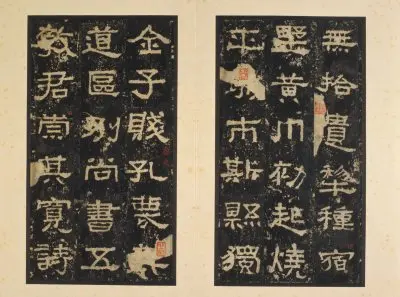 無拾遺犂種宿
壄黃巾初起燒
平城市斯縣獨
全子賤孔蔑其
道區別尚書五
教君崇其寬詩